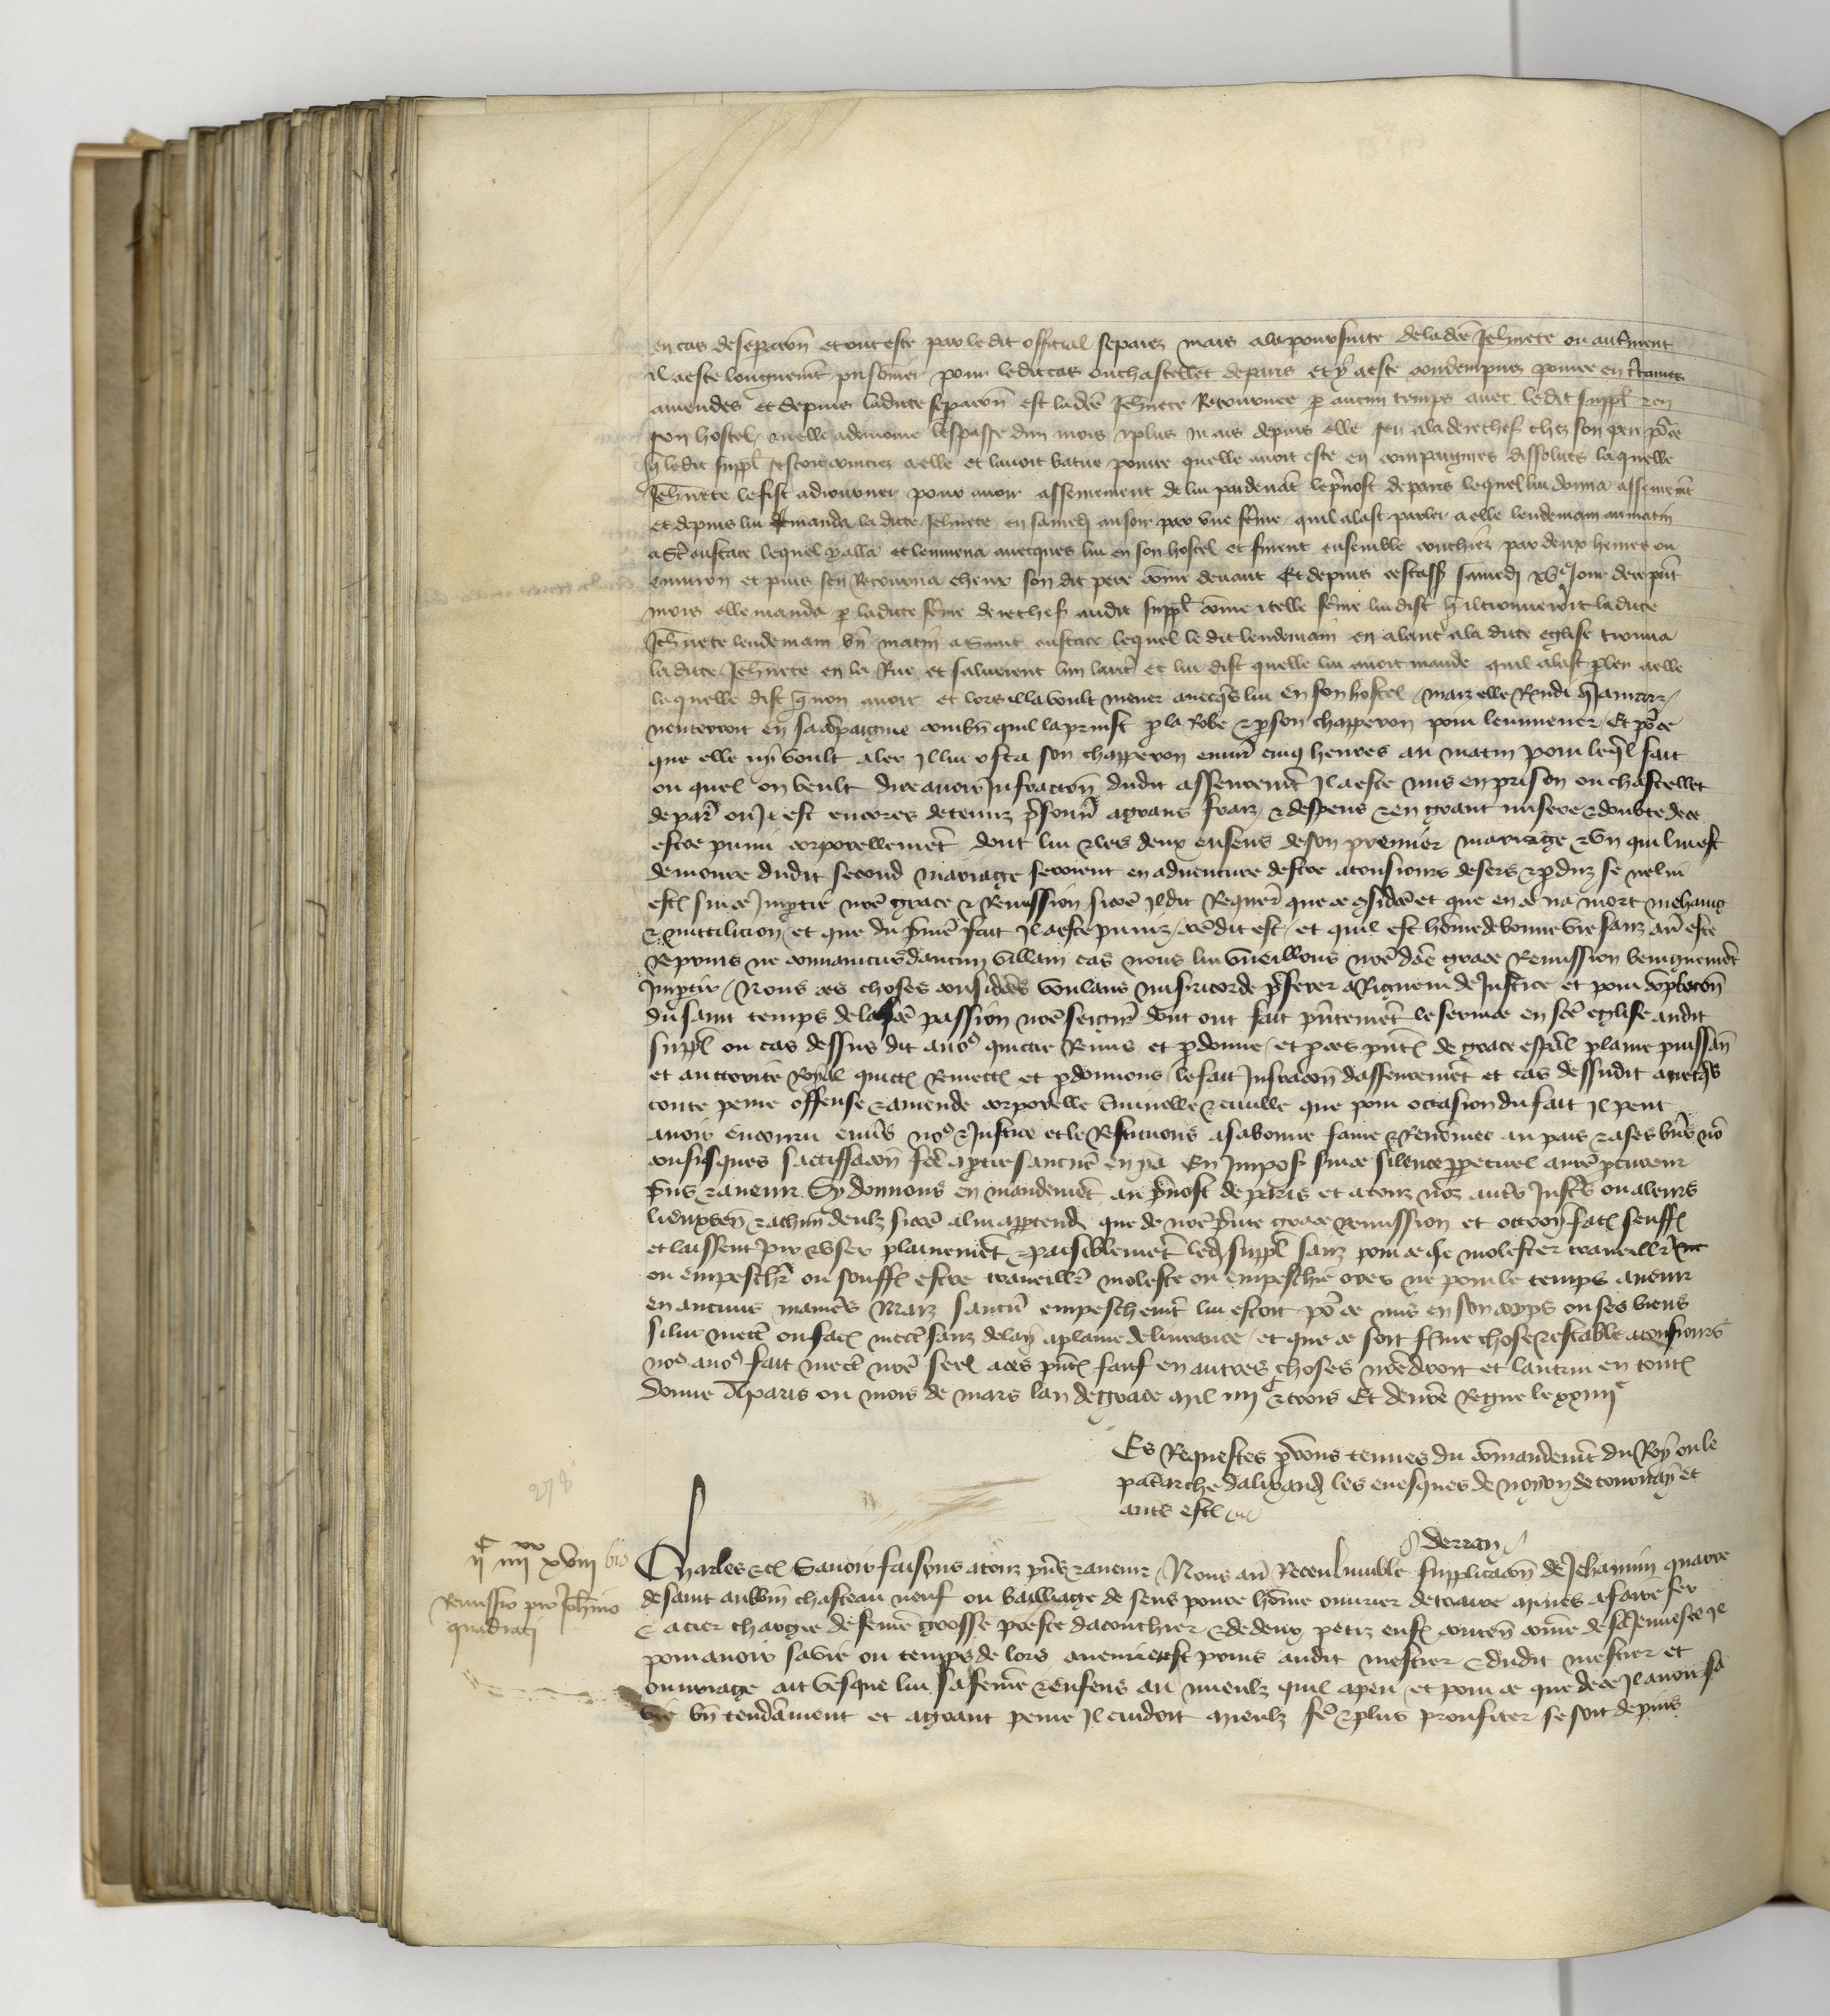 en cas de sepacon et ont este par ledit official separez mais a la poursuite de ladce Jehnete ou autment
il a este longuemt prisonnier pour ledit cas ou chastellet de paris et y a este condempnez pource en ctaines
amendes et depuis ladicte sepacon est ladce Jehnete Retournee p aucun temps avec ledit suppl et en
son hostel ou elle a demoure lespasse dun mois et plus mais depuis elle sen ala derechef chez son pere pce
q ledit suppl sestoit courciez a elle et lavoit batue pource quelle avoit este en compaignies dissolues laquelle
Jehnete le fist adiourner pour avoir asseurement de lui pardevat le pvost de paris lequel lui donna asseuremt
et depuis lui demanda ladicte Jehnete en samedi au soir par une feme quil alast parler a elle lendemain au matin
a St eustace lequel y alla et lenmena avecques lui en son hostel et furent ensemble couchiez par deux heures ou
environ et puis sen Retourna cheux son dit pere come devant Et depuis cestass samedi xve Jour de ce pnt
mois elle manda p ladicte feme derechef audit suppl come icelle feme lui dist q il trouveroit ladicte
Jehnete lendemain bn matin a Saint eustace lequel le dit lendemain en alant a la dicte eglise trouva
ladicte Jehnete en la Rue et saluerent lun laut et lui dist quelle lui avoit mande quil alast pler a elle
laquelle dist q non avoit et lors il la voult mener avecqs lui en son hostel / maiz elle Rendi q Jamaiz /
nentreroit en sa compaignie combn quil la prinst p la Robe et p son chapperon pour lenmener / Et pce
que elle ny voult aler Il lui osta son chapperon envir cinq heures au matin pour leql fait
ou quel on veult dire avoir Infraction dudit asseuremt Il a este mis en prison ou chastellet
de par ou Il est encores detenuz psonn a grans fraiz et despens et en grant misere et doubte de ce
estre puni corporellemet dont lui et ses deux enfens de son premier mariage et un qui lui est
demoure dudit second mariage seroient en adventure destre a tousiours desers et pduz se ne lui
est sur ce Impartie nre grace et Remission sicoe Il dit Requer que ce qside et que en ce na mort mehaing
et mutilacion / et que du pmier fait Il a este puniz / coe dit est / et quil est home de bonne vie sanz av este
Repris ne convaincus daucun villain cas nous lui vueillons nre dce grace Remission benignemt
Impartir / Nous ces choses considees voulans misericorde pferer a Rigueur de Justice et pour contplacon
du saint temps de la sce passion nre seignr dont ont fait pntemet le service en sce eglise audit
suppl ou cas dessus dit avos quictie Remis et pdonne / et p ces pnt de grace espal plaine puissan
et auctorite Royal quict Remect et pdonnons le fait Infraccon dasseuremet et cas dessudit avecqs
toute peine offense et amende corporelle criminelle et civille que pour occasion du fait Il peut
avoir encouru envs nos et Justice et le Restituons a sa bonne fame et Renomee au pais et a ses bns no
confisques satisfacon fce a ptie sanc ne en ya En Imposs sur ce silence ppetuel a nre pcureur
pns et avenir Sy donnons en mandement au pvost de paris et a touz noz auts Justics ou a leurs
lieuxten et a chun deulz sicoe a lui apptendr que de nre pnte grace remission et ottroy fac seuff
et laissent joir et user plainemet et paisiblemet ledt suppl sanz pour ce le molester travaillr
ou empeschr ou souff estre travaillie moleste ou empeschie ores ne pour le temps avenir
en aucune manie Maiz saucun empeschemet lui estoit pour ce mis en son corps ou ses biens
si lui mect ou fac mect sanz delay a plaine delivrance / et que ce soit ferme chose et estable a tousiours
nos avos fait mect nre seel a ces pnt sauf en autres choses nre droit et lautrui en tout
Donne A paris ou mois de mars lan de grace mil iiiic et trois Et de nre Regne le xxiiiie
Es Requestes p vous tenues du comandemt du Roy ou le
patiarche dalixandr les evesques de noyon de tournay et
auts est
278
derian
iic iiiixx xviii bis
Remissio pro Johnino
quadrati
Charles etc Savoir faisons a touz pns et avenir / Nous av Receu humble supplicacon de Jehannin quarre
de saint aubin chasteau neuf ou bailliage de sens povre home ouvrier de traire mines a faire fer
et acier chargie de feme grosse preste dacouchier et de deux petiz enf conten come de sa Jeunesce Il
pour avoir sa vie ou temps de lors avenir eust prins audit mestier et dudit mestier et
ouvrage ait vesque lui sa feme et enfens au mieulz quil a peu / et pour ce que de ce Il avoit sa
vie bn tendrement et a grant peine Il cuidoit mieulz fe et plus proufiter se soit depuis